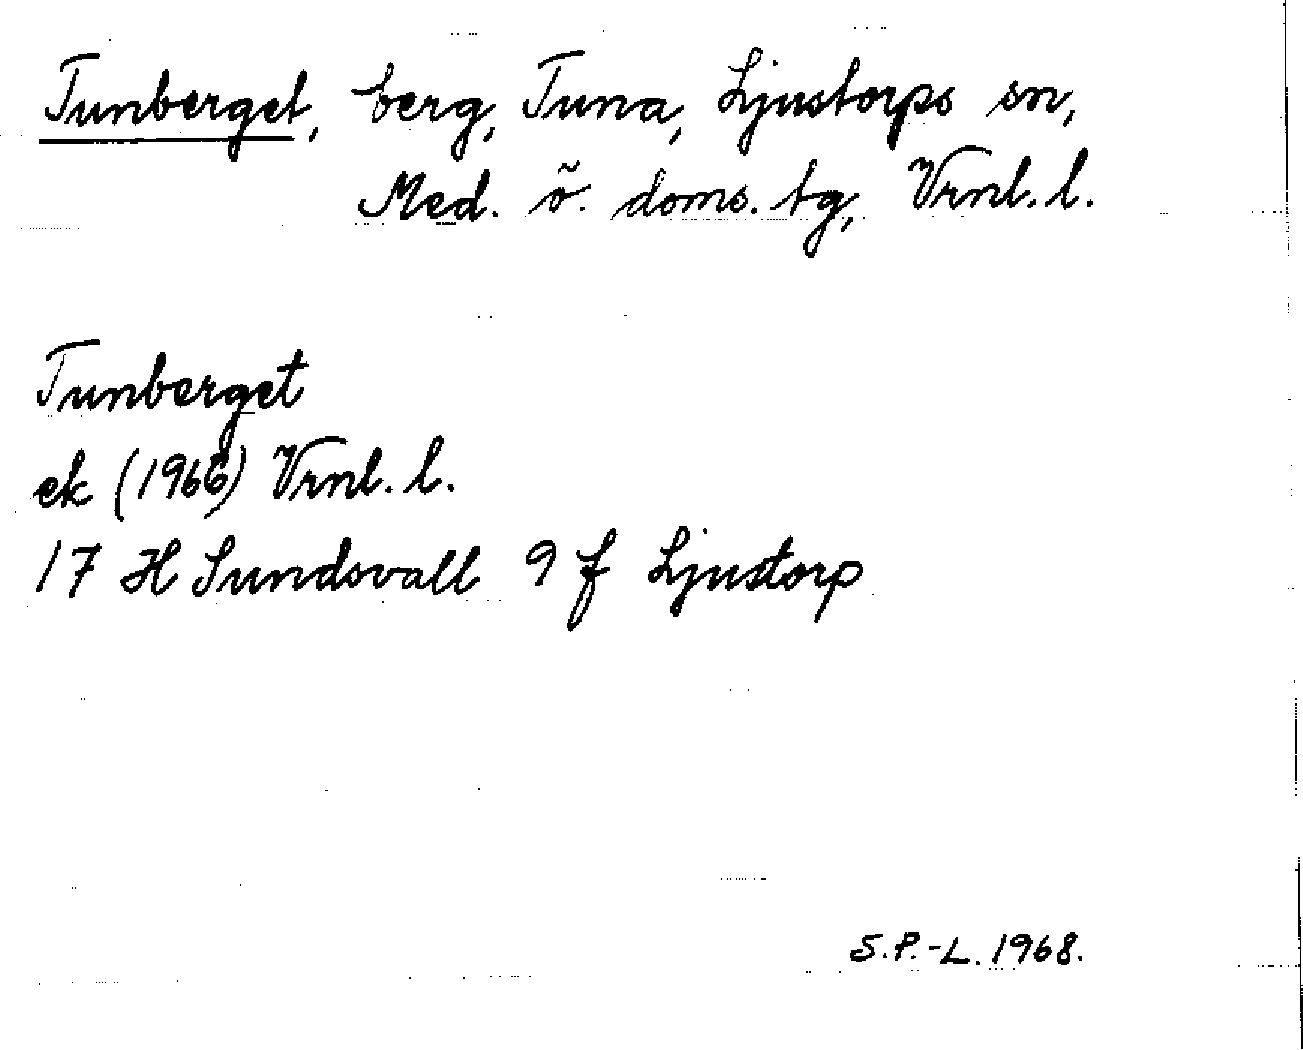 Tunberget, berg, Tuna, Ljustorps sn,
Med. ö. doms. tg, Vrnl. l.
Tunberget
ek (1966) Vrnl. l.
17 H Sundsvall 9 f Ljustorp
S.P.-L. 1968.